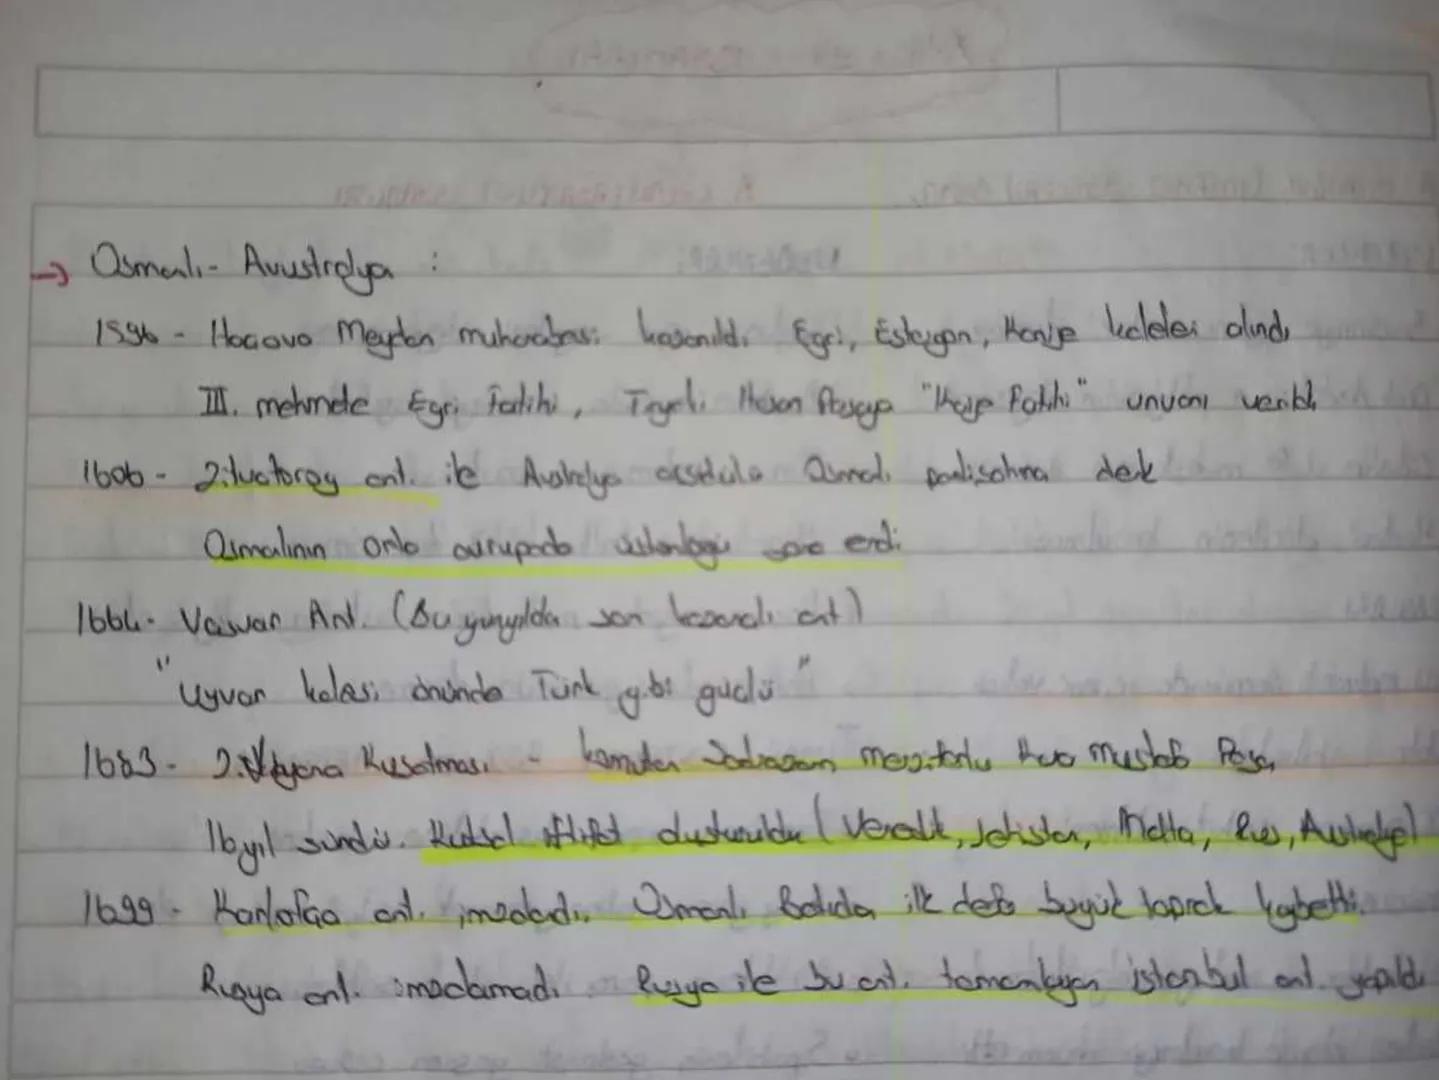 → Osmanlı - Avusturalya :
1596 - Hacova Meydan muharebesi kazanıldı Eğri, Estergon, Kanje kaleleri alındı
III. mehmde Eğri Fatihi, Tiryeki Hasan Paşaya "Kanje Fatihi" ünvanı verildi
1606 - Zitvatorog ant. ile Avusturalya Osmanlı padişahına denk
Osmalının orta avrupada üstünlüğü sona erdi
1664 - Vasvar Ant. (Bu yüzyılda son kazançlı ant)
"Uyvar kalesi önünde Türk gibi güçlü"
1683 - 2. Viyana Kuşatması - komutan Sadrazam merzifonlu Kara Mustafa Paşa
16 yıl sürdü. Kutsal ittifat (Venedik, Lehistan, Malta, Rus, Avusturalya)
1699 - Karlofça ant. imzaladı. Osmanlı Batıda ilk defa büyük toprak kaybetti.
Rusya ant. imzalamadı. Rusya ile bu ant. tamamlayan istanbul ant. yapıldı